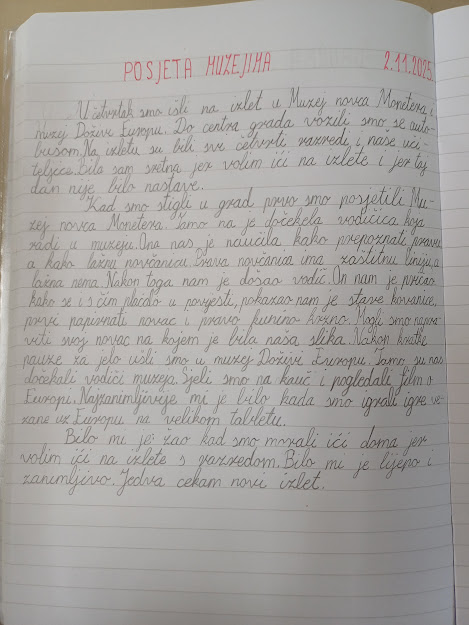 POSJETA MUZEJIMA 2.11.2025.
U četvrtak smo išli na izlet u Muzej novca Moneterra i
Muzej Doživi Europu. Do centra grada vozili smo se auto-
busom. Na izletu su bili svi četvrti razredi i naše uči-
teljice. Bila sam sretna jer volim ići na izlete i jer taj
dan nije bilo nastave.
Kad smo stigli u grad prvo smo posjetili Mu-
zej novca Moneterra. Tamo na je dočekela vodičica koja
radi u muzeju. Ona nas je naučila kako prepoznati pravu
a kako lažnu novčanicu. Prava novčanica ima zaštitnu liniju, a
lažna nema. Nakon toga nam je došao vodič. On nam je pričao
kako se i s čim plaćalo u povjesti, pokazao nam je stare kovanice,
prvi papirnati novac i pravo kunino krzno. Mogli smo napra-
viti svoj novac na kojem je bila naša slika. Nakon kratke
pauze za jelo ušli smo u muzej Doživi Europu. Tamo su nas
dočekali vodiči muzeja. Sjeli smo na kauč i pogledali film o
Europi. Najzanimljivije mi je bilo kada smo igrali igre ve-
zane uz Europu na velikom tabletu.
Bilo mi je žao kad smo morali ići doma jer
volim ići na izlete s razredom. Bilo mi je lijepo i
zanimljivo. Jedva čekam novi izlet.